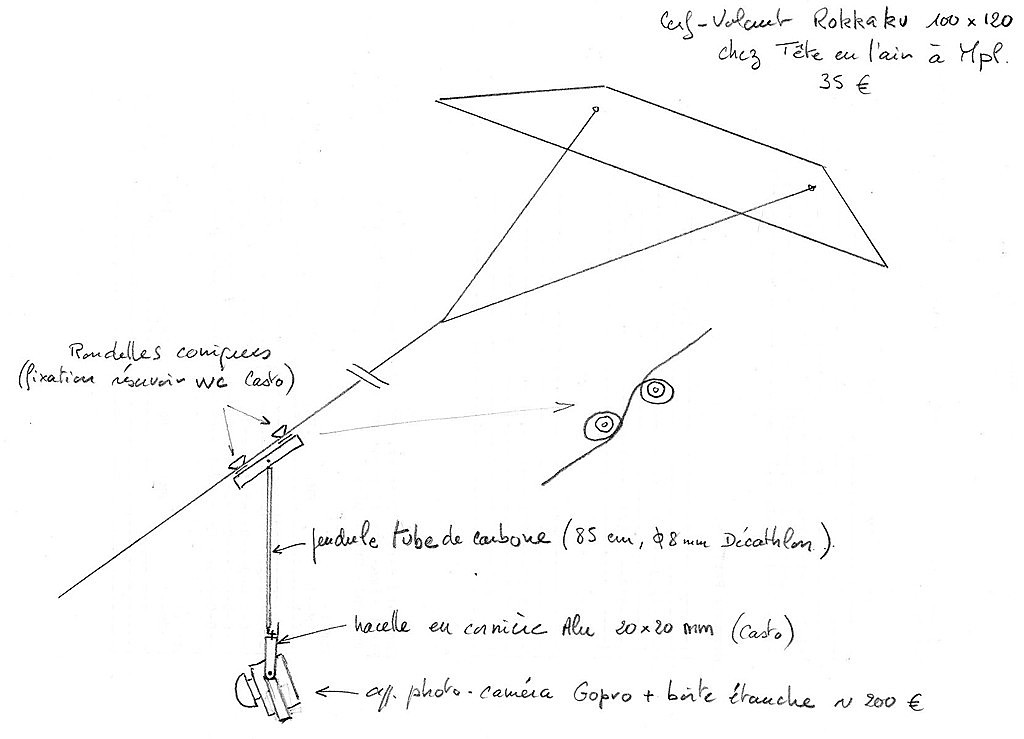 Cerf-Volant Rokkaku 100 x 120
chez Tête en l'air à Mpl.
35 €
Rondelles coniques
(fixation réservoir WC Casto)
pendule tube de carbone (85 cm, φ8mm Décathlon).
nacelle en cornière Alu 20x20 mm (Casto)
app. photo-caméra Gopro + boîte étanche ~ 200 €